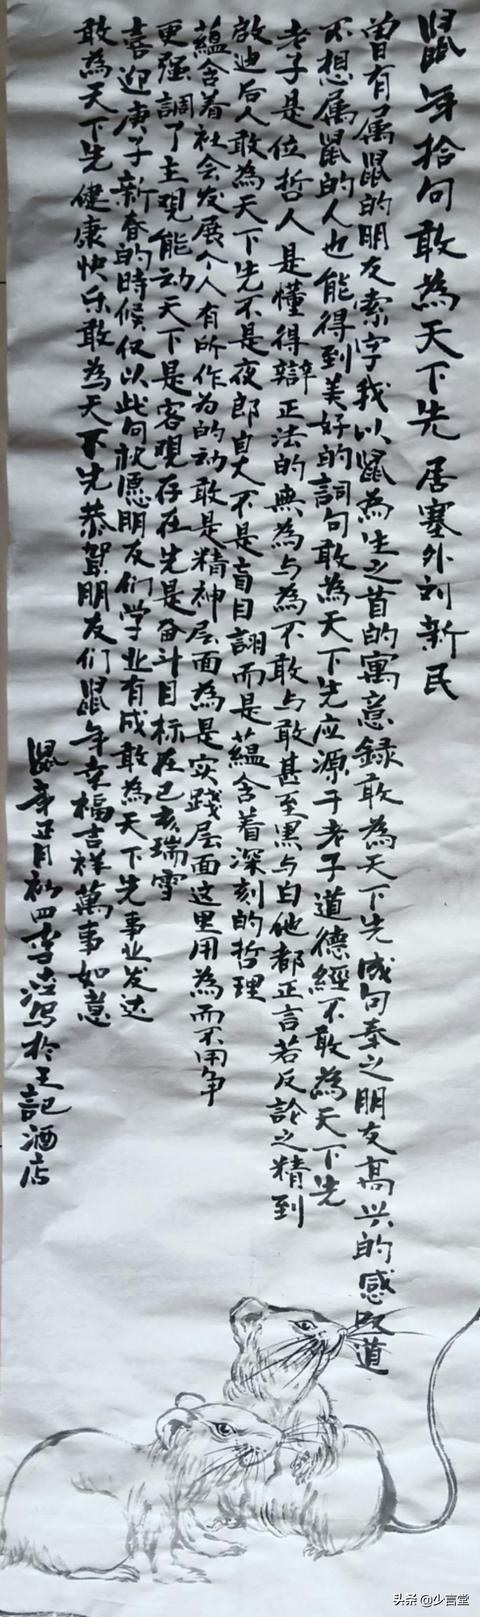 鼠年拾句敢為天下先 居塞外刘新民
曾有属鼠的朋友索字我以鼠為生之首的寓意録敢為天下先成句奉之朋友高兴的感叹道
不想属鼠的人也能得到美好的詞句敢為天下先应源于老子道德經不敢為天下先
老子是位哲人是懂得辯正法的典為与為不敢与敢甚至黑与白他都正言若反論之精到
啟迪后人敢為天下先不是夜郎自大不是盲目詡而是蘊含着深刻的哲理
蘊含着社会发展个人有所作为的动敢是精神层面為是实踐层面这里用為而不用争
更强調了主观能动天下是客观存在先是奋斗目标在己亥瑞雪
喜迎庚子新春的時候仅以此句祝愿朋友们学业有成敢為天下先事业发达
敢為天下先健康快乐敢為天下先恭賀朋友们鼠年幸福吉祥萬事如意
鼠年正月初四李 写於王記酒店
头条 @少言堂